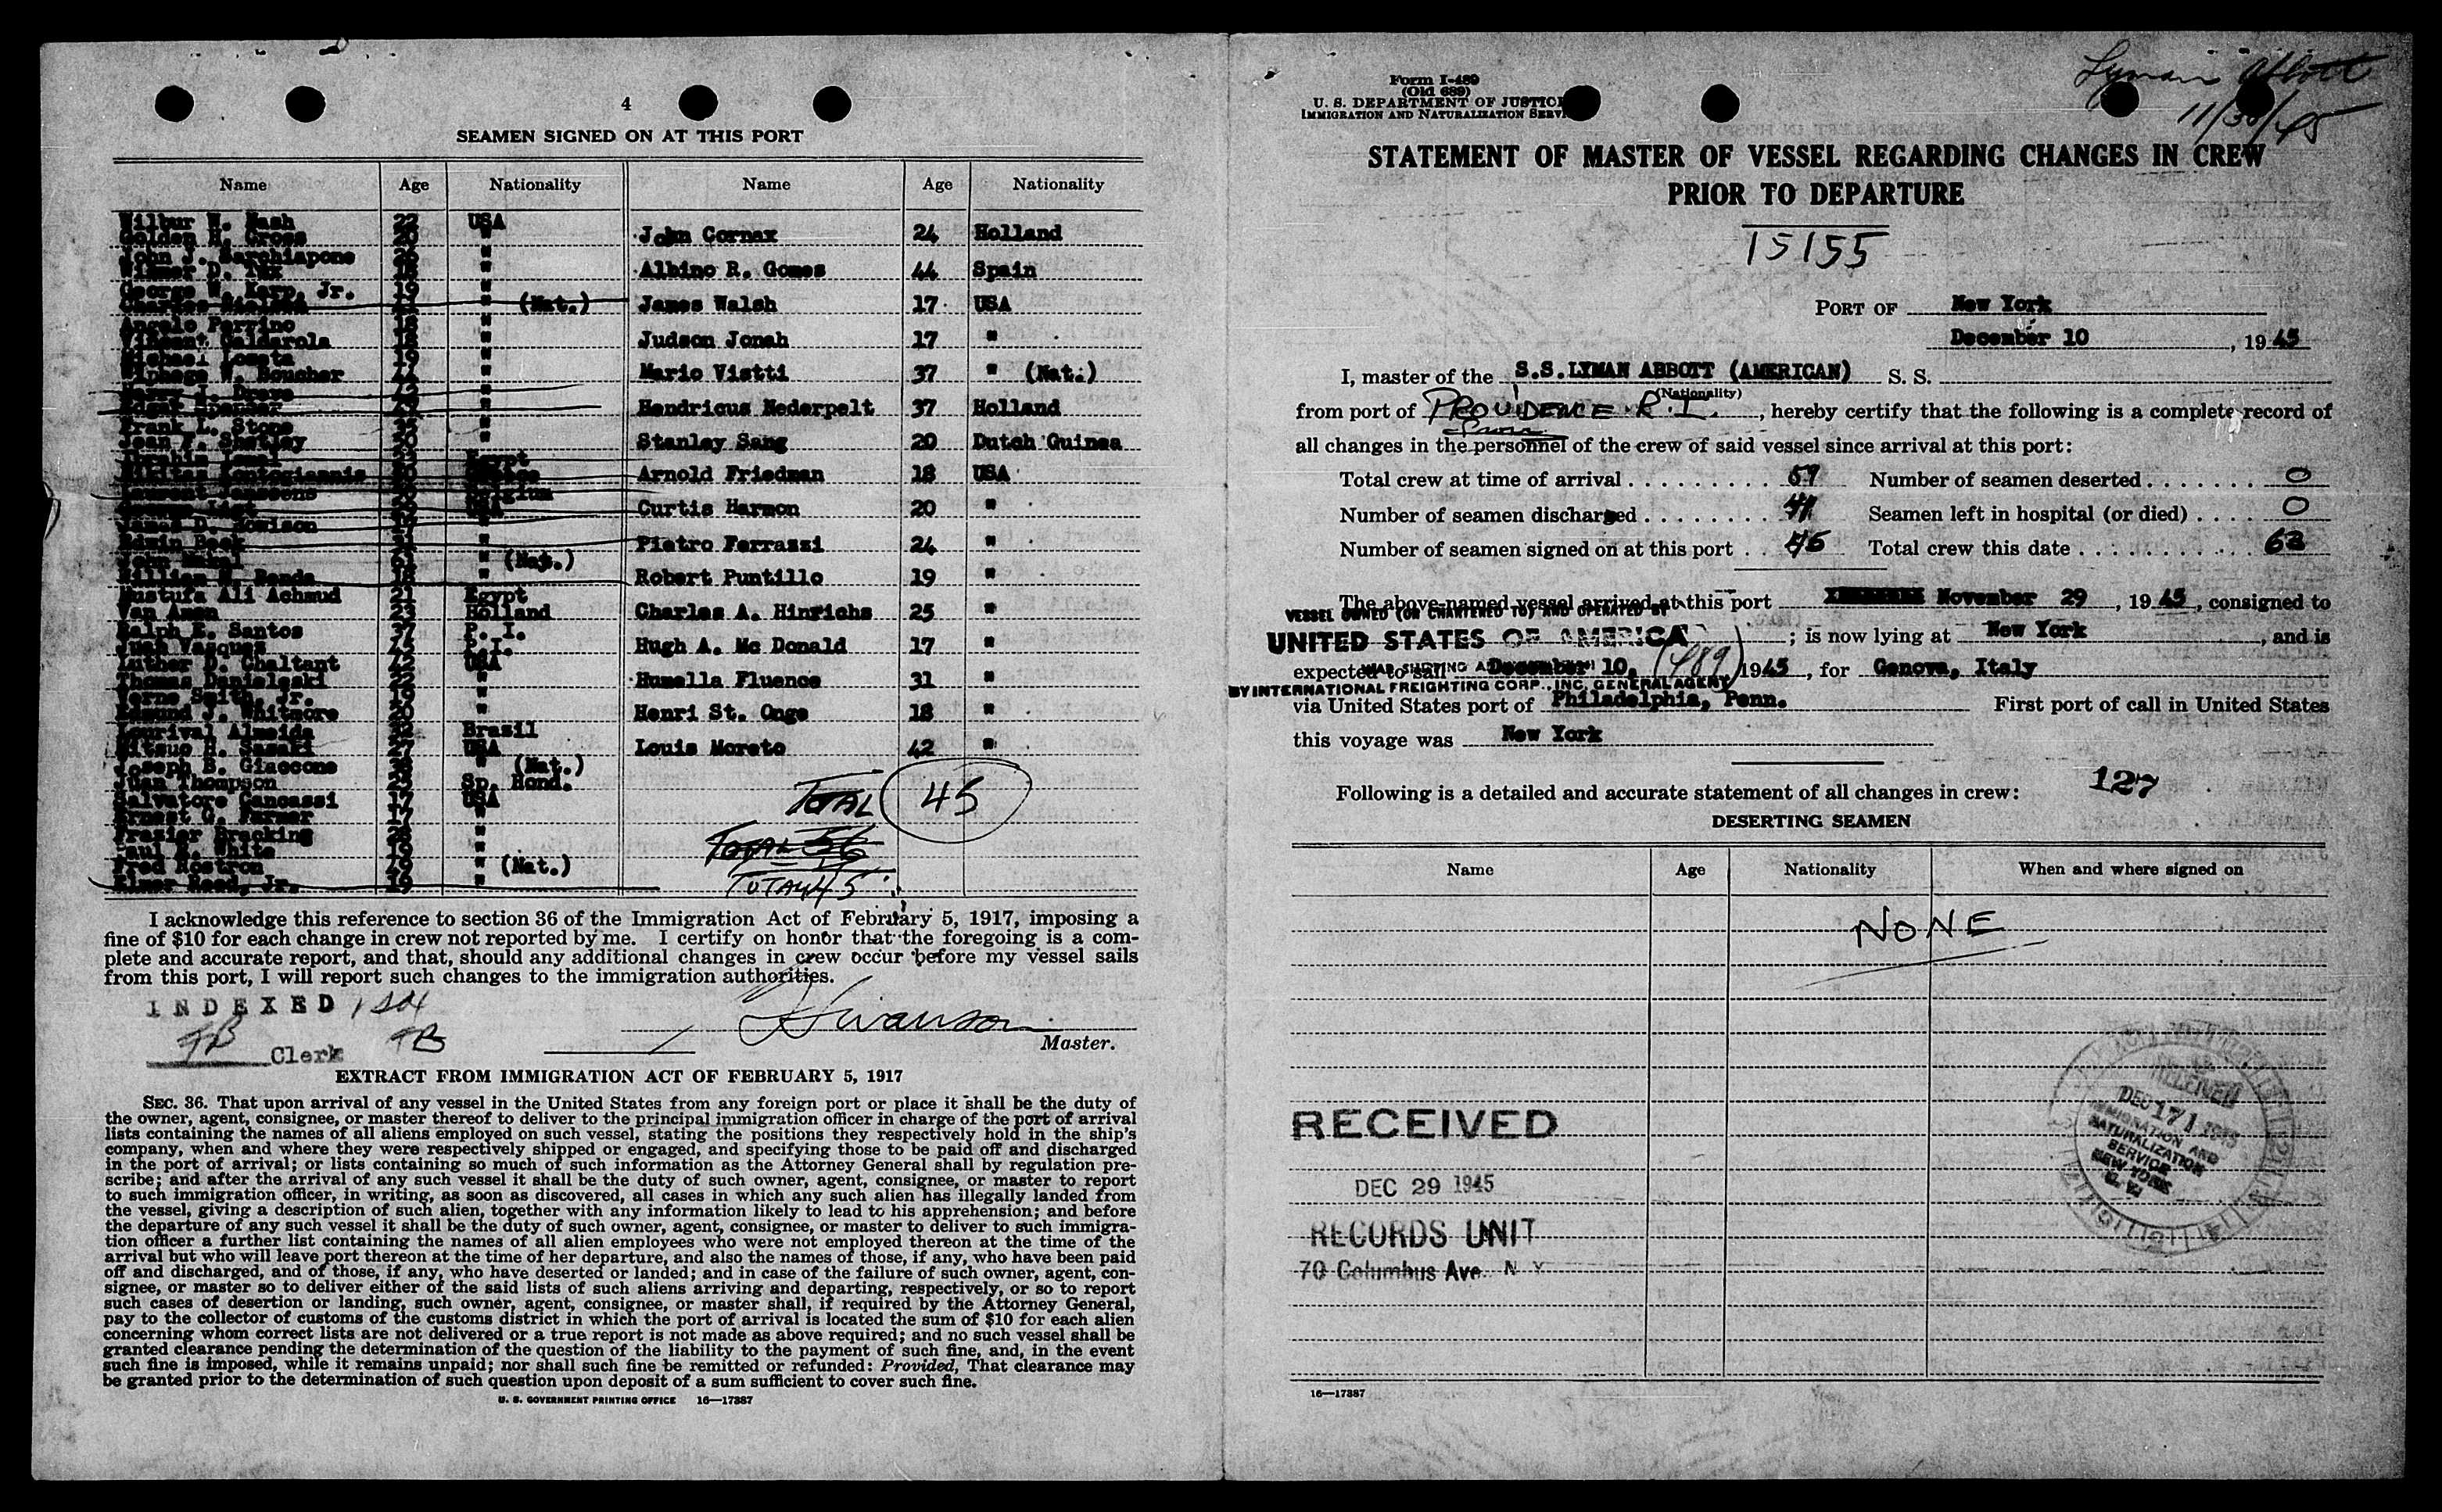 4
SEAMEN SIGNED ON AT THIS PORT
Name Age Nationality Name Age Nationality
Wilbur W. Nash 22 USA
Golden H. Gross 20 "
John J. Sarchiapone "
Wilmer D. "
George W. Karp, Jr. 19 "
" (Nat.)
Angelo Perrino 18 "
Vincent Caldarola 18 "
Michael 19 "
Boucher "
"
Edgar Spencer "
Frank L. Stone "
Jean F. "
Egypt
Belgium
USA
James D. "
Edwin Beck "
" (Nat.)
William H. "
Mustufa Ali Achmud 21 Egypt
Van Amen 23 Holland
Ralph E. Santos 37 P. I.
Juan Vasques 45 P. I.
Luther D. Chaltant 42 USA
Thomas Danieleski 22 "
Verne Smith, Jr. 19 "
Edmund J. Whitmore 20 "
Lourival Almeida Brasil
Mitsuo H. Sasaki 27 USA
Joseph B. Giaccone " (Nat.)
Juan Thompson Sp. Hond.
Salvatore Cancassi 17 USA
Ernest G. Farmer 17 "
Frazier Bracking "
Paul White 19 "
Fred Rostron 49 " (Nat.)
Elmer Reed, Jr. 19 "
John Cornax 24 Holland
Albino R. Gomes 44 Spain
James Walsh 17 USA
Judson Jonah 17 "
Mario Viotti 37 " (Nat.)
Hendricus Nederpelt 37 Holland
Stanley Sang 20 Dutch Guinea
Arnold Friedman 18 USA
Curtis Harmon 20 "
Pietro Ferrazzi 24 "
Robert Puntillo 19 "
Charles A. Hinrichs 25 "
Hugh A. Mc Donald 17 "
Humella Fluence 31 "
Henri St. Onge 18 "
Louis Moreto 42 "
TOTAL 45
TOTAL 56
TOTAL 45
I acknowledge this reference to section 36 of the Immigration Act of February 5, 1917, imposing a
fine of $10 for each change in crew not reported by me. I certify on honor that the foregoing is a com-
plete and accurate report, and that, should any additional changes in crew occur before my vessel sails
from this port, I will report such changes to the immigration authorities.
INDEXED
Swanson
FB Clerk FB
Master.
EXTRACT FROM IMMIGRATION ACT OF FEBRUARY 5, 1917
SEC. 36. That upon arrival of any vessel in the United States from any foreign port or place it shall be the duty of
the owner, agent, consignee, or master thereof to deliver to the principal immigration officer in charge of the port of arrival
lists containing the names of all aliens employed on such vessel, stating the positions they respectively hold in the ship's
company, when and where they were respectively shipped or engaged, and specifying those to be paid off and discharged
in the port of arrival; or lists containing so much of such information as the Attorney General shall by regulation pre-
scribe; and after the arrival of any such vessel it shall be the duty of such owner, agent, consignee, or master to report
to such immigration officer, in writing, as soon as discovered, all cases in which any such alien has illegally landed from
the vessel, giving a description of such alien, together with any information likely to lead to his apprehension; and before
the departure of any such vessel it shall be the duty of such owner, agent, consignee, or master to deliver to such immigra-
tion officer a further list containing the names of all alien employees who were not employed thereon at the time of the
arrival but who will leave port thereon at the time of her departure, and also the names of those, if any, who have been paid
off and discharged, and of those, if any, who have deserted or landed; and in case of the failure of such owner, agent, con-
signee, or master so to deliver either of the said lists of such aliens arriving and departing, respectively, or so to report
such cases of desertion or landing, such owner, agent, consignee, or master shall, if required by the Attorney General,
pay to the collector of customs of the customs district in which the port of arrival is located the sum of $10 for each alien
concerning whom correct lists are not delivered or a true report is not made as above required; and no such vessel shall be
granted clearance pending the determination of the question of the liability to the payment of such fine, and, in the event
such fine is imposed, while it remains unpaid; nor shall such fine be remitted or refunded: Provided, That clearance may
be granted prior to the determination of such question upon deposit of a sum sufficient to cover such fine.
U. S. GOVERNMENT PRINTING OFFICE 16—17387
Form I-489
(Old 689)
U. S. DEPARTMENT OF JUSTICE
IMMIGRATION AND NATURALIZATION SERV
Lyman Abbott
11/30/45
STATEMENT OF MASTER OF VESSEL REGARDING CHANGES IN CREW
PRIOR TO DEPARTURE
15155
PORT OF New York
December 10, 1945
I, master of the S.S. LYMAN ABBOTT (AMERICAN) S. S.
(Nationality)
from port of PROVIDENCE R.I., hereby certify that the following is a complete record of
all changes in the personnel of the crew of said vessel since arrival at this port:
Total crew at time of arrival 57 Number of seamen deserted 0
Number of seamen discharged 41 Seamen left in hospital (or died) 0
Number of seamen signed on at this port 46 Total crew this date 62
The above-named vessel arrived at this port November 29, 1945, consigned to
VESSEL OWNED (OR CHARTERED TO) AND OPERATED BY
UNITED STATES OF AMERICA; is now lying at New York, and is
expected to sail December 10, (489) 1945, for Genova, Italy
WAR SHIPPING
BY INTERNATIONAL FREIGHTING CORP., INC. GENERAL AGENT
via United States port of Philadelphia, Penn. First port of call in United States
this voyage was New York
Following is a detailed and accurate statement of all changes in crew: 127
DESERTING SEAMEN
Name Age Nationality When and where signed on
NONE
RECEIVED
DEC 29 1945
RECORDS UNIT
70 Columbus Ave. N Y
RECEIVED
DEC 17 1945
IMMIGRATION AND
NATURALIZATION
SERVICE
NEW YORK
16—17387